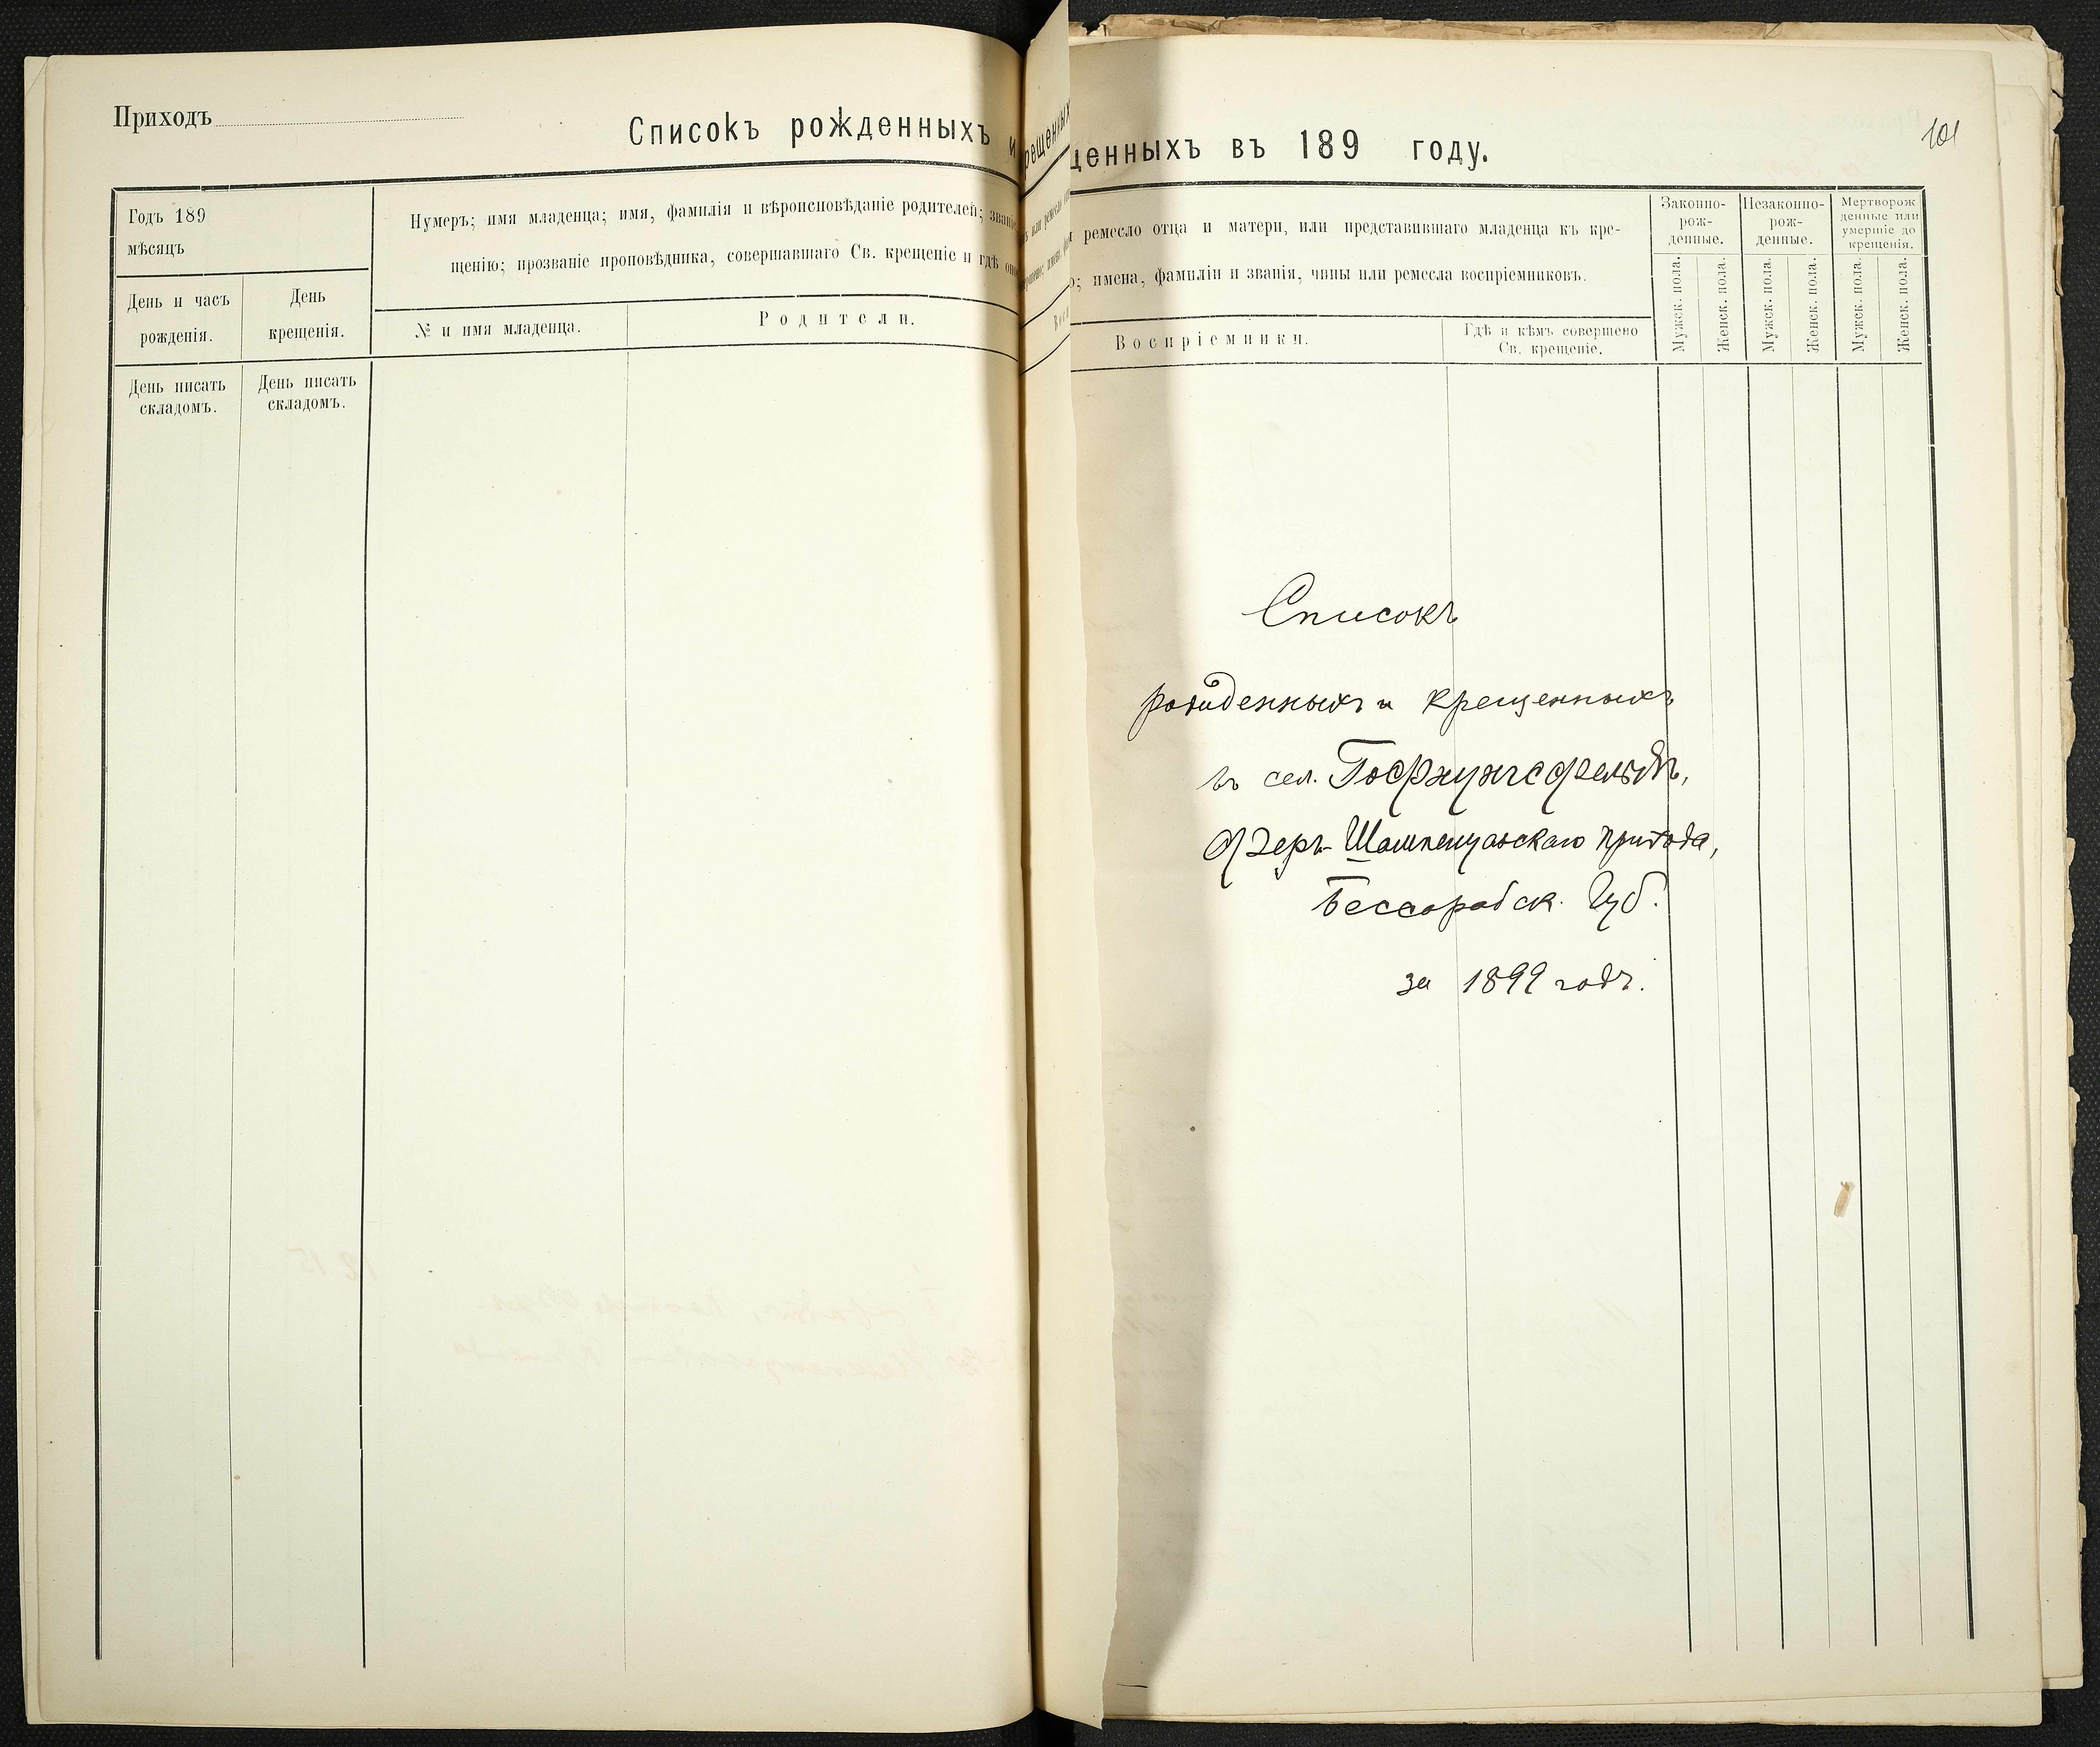 Приходъ
Списокъ рожденныхъ и
Годъ 189
мѣсяцъ
Нумеръ; имя младенца; имя, фамилія и вѣроисповѣданіе родителей;
щенію; прозваніе проповѣдника, совершавшаго Св. крещеніе и гдѣ
День и часъ
рожденія.
День
крещенія.
№ и имя младенца.
Родители.
День писать
складомъ.
День писать
складомъ.
рещенныхъ
щенныхъ въ 189 году.
101
ремесло отца и матери, или представившаго младенца къ кре-
имена, фамиліи и званія, чины или ремесла воспріемниковъ.
Воспріемники.
Гдѣ и кѣмъ совершено
Св. крещеніе.
Законно-
рож-
денные.
Незаконно-
рож-
денные.
Мертворож
денные или
умершіе до
крещенія.
Мужск. пола.
Женск. пола.
Мужск. пола.
Женск. пола.
Мужск. пола.
Женск. пола.
Списокъ
рожденныхъ и крещенныхъ
въ сел. Гофнунгсфельдъ,
Фзеръ-Шампенуазскаго прихода,
Бессарабск. Губ.
за 1899 годъ.